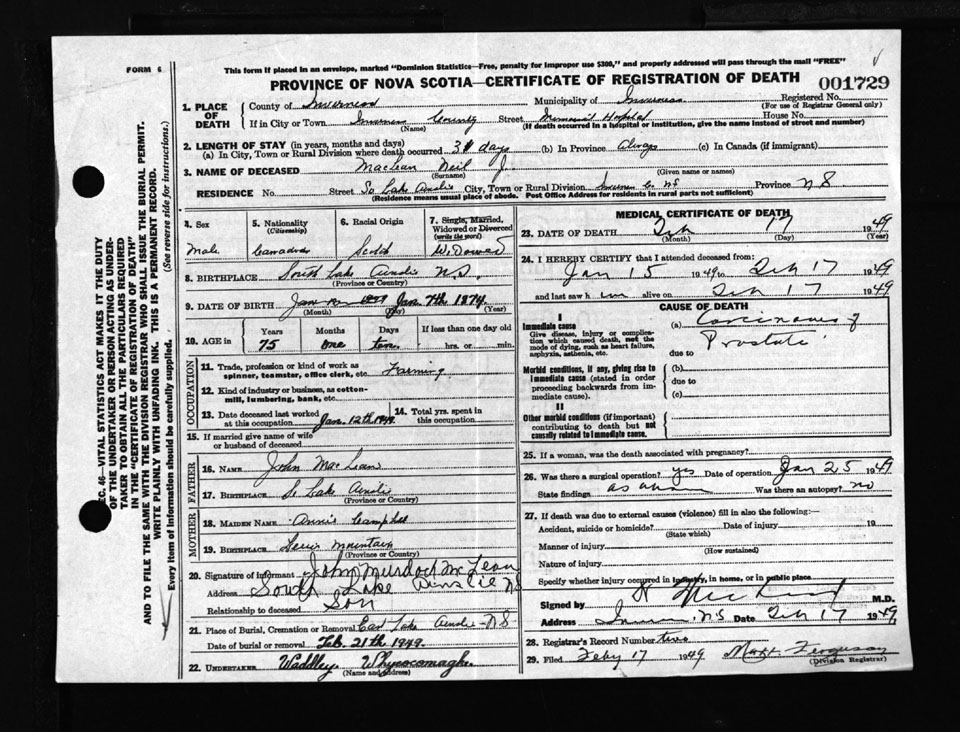 FORM 6
This form if placed in an envelope, marked "Dominion Statistics—Free, penalty for improper use $300," and properly addressed will pass through the mail "FREE"
PROVINCE OF NOVA SCOTIA—CERTIFICATE OF REGISTRATION OF DEATH
001729
1. PLACE OF DEATH
County of Inverness Municipality of Inverness Registered No.
(For use of Registrar General only)
If in City or Town Inverness County Street Memorial Hospital House No.
(Name) (If death occurred in a hospital or institution, give the name instead of street and number)
2. LENGTH OF STAY (in years, months and days)
(a) In City, Town or Rural Division where death occurred 31 days (b) In Province Always (c) In Canada (if immigrant)
3. NAME OF DECEASED MacLean Neil J.
(Surname) (Given name or names)
RESIDENCE No. Street So Lake Ainslie City, Town or Rural Division Province N S
(Residence means usual place of abode. Post Office Address for residents in rural parts not sufficient)
4. Sex
Male
5. Nationality
(Citizenship)
Canadian
6. Racial Origin
Scotch
7. Single, Married, Widowed or Divorced
(write the word)
Widowed
8. BIRTHPLACE South Lake Ainslie N.S.
(Province or Country)
9. DATE OF BIRTH Jan. 7th 1874
(Month) (Day) (Year)
10. AGE in
Years Months Days If less than one day old
75 one ten hrs. or min.
OCCUPATION
11. Trade, profession or kind of work as spinner, teamster, office clerk, etc. Farming
12. Kind of industry or business, as cotton-mill, lumbering, bank, etc.
13. Date deceased last worked at this occupation Jan. 12th 1949
14. Total yrs. spent in this occupation
15. If married give name of wife or husband of deceased
FATHER
16. NAME John MacLean
17. BIRTHPLACE S. Lake Ainslie
(Province or Country)
MOTHER
18. MAIDEN NAME Annie Campbell
19. BIRTHPLACE Mountain
(Province or Country)
20. Signature of informant John Murdock McLean
Address South Lake Ainslie NS
Relationship to deceased Son
21. Place of Burial, Cremation or Removal East Lake Ainslie - N S
Date of burial or removal Feb. 21th 1949.
22. UNDERTAKER Waddley Whycocomagh
(Name and address)
MEDICAL CERTIFICATE OF DEATH
23. DATE OF DEATH Feb 17 1949
(Month) (Day) (Year)
24. I HEREBY CERTIFY that I attended deceased from:
Jan 15 1949 to Feb 17 1949
and last saw h im alive on Feb 17 1949
CAUSE OF DEATH
I
Immediate cause
Give disease, injury or complication which caused death, not the mode of dying, such as heart failure, asphyxia, asthenia, etc.
(a) Carcinoma of Prostate
due to
Morbid conditions, if any, giving rise to immediate cause (stated in order proceeding backwards from immediate cause).
(b)
due to
(c)
II
Other morbid conditions (if important) contributing to death but not causally related to immediate cause.
25. If a woman, was the death associated with pregnancy?
26. Was there a surgical operation? yes Date of operation Jan 25 1949
State findings as above Was there an autopsy? no
27. If death was due to external causes (violence) fill in also the following:—
Accident, suicide or homicide? Date of injury 19
(State which)
Manner of injury
(How sustained)
Nature of injury
Specify whether injury occurred in industry, in home, or in public place
Signed by M.D.
Address N.S. Date Feb 17 1949
28. Registrar's Record Number two
29. Filed Feby 17 1949 Ferguson
(Division Registrar)
SEC. 46—VITAL STATISTICS ACT MAKES IT THE DUTY
OF THE UNDERTAKER OR PERSON ACTING AS UNDER-
TAKER TO OBTAIN ALL THE PARTICULARS REQUIRED
IN THE "CERTIFICATE OF REGISTRATION OF DEATH"
AND TO FILE THE SAME WITH THE DIVISION REGISTRAR WHO SHALL ISSUE THE BURIAL PERMIT.
WRITE PLAINLY WITH UNFADING INK. THIS IS A PERMANENT RECORD.
Every item of information should be carefully supplied. (See reverse side for instructions.)